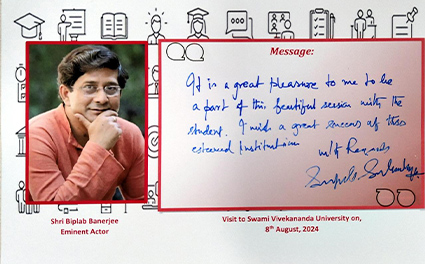 Message:
It is a great pleasure to me to be
a part of this beautiful session with the
student. I wish a great success of this
esteemed institution
with Regards
Shri Biplab Banerjee
Eminent Actor
Visit to Swami Vivekananda University on,
8th August, 2024